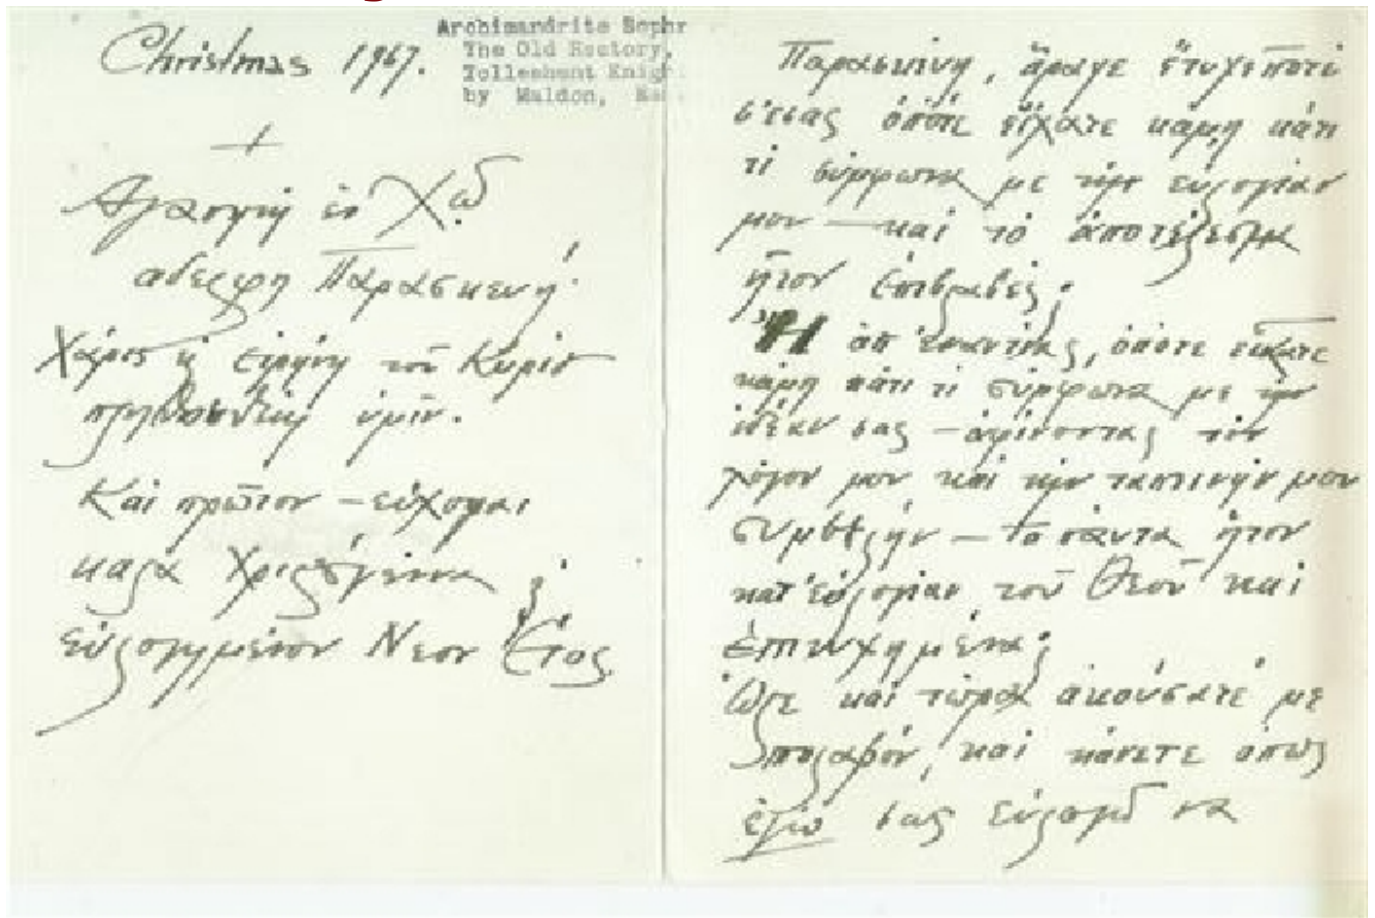 Christmas 1967.
Archimandrite Sophr
The Old Rectory,
Tolleshunt Knigh
by Maldon, Ess
+
Ἀγαπητὴ ἐν Χῷ
αδελφη Παρασκευή·
Χάρις κ εἰρήνη τοῦ Κυρίου
πληθυνθείη ὑμῖν.
Καὶ πρῶτον – εὔχομαι
καλὰ Χριστούγεννα
εὐλογημένον Νεον Ἔτος
Παρασκευή, ἄραγε ἔτυχε ποτὲ
σ'εσας ὁπότε εἴχατε κάμη κάτι
τὶ σύμφωνα με τὴν εὐλογίαν
μου – καὶ τὸ ἀποτέλεσμα
ἦτον ἐπιβλαβές;
Ἢ ἀπ' ἐναντίας, ὁπότε εἴχατε
κάμη κάτι τὶ σύμφωνα με τὴν
ἰδέαν σας – ἀφίνοντας τὸν
λόγον μου καὶ τὴν ταπεινήν μου
συμβουλήν – τὸ πάντα ἦτον
κατ' εὐλογίαν τοῦ Θεοῦ καὶ
ἐπιτυχημένα;
Ὥστε καὶ τώρα ἀκούσατέ με
καὶ κάνετε ὅπως
ἐγὼ σας εὐλογῶ να